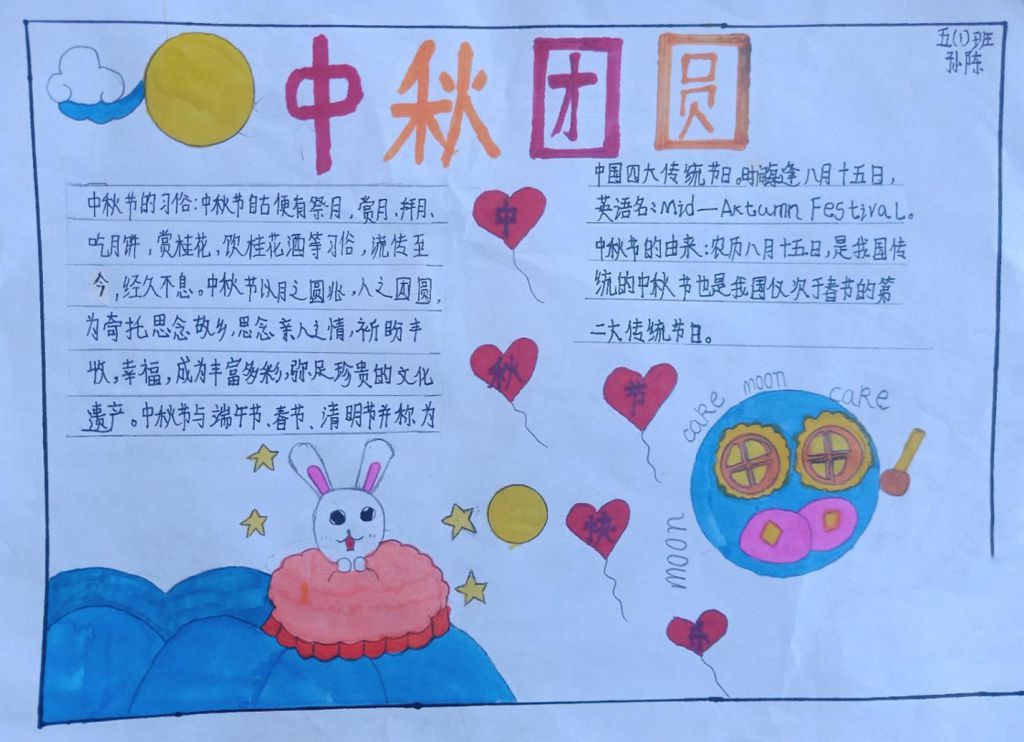 五(1)班
孙陈
中秋团圆
中秋节的习俗:中秋节自古便有祭月,赏月、拜月、
吃月饼,赏桂花、饮桂花酒等习俗,流传至
今,经久不息。中秋节以月之圆兆,人之团圆,
为寄托思念故乡,思念亲人之情,祈盼丰
收,幸福,成为丰富多彩,弥足珍贵的文化
遗产。中秋节与端午节、春节、清明节并称为
中国四大传统节日。时逢八月十五日,
英语名:Mid—Aktumn Festival。
中秋节的由来:农历八月十五日,是我国传
统的中秋节也是我国仅次于春节的第
二大传统节日。
中
秋
节
快
乐
cake
moon
cake
moon